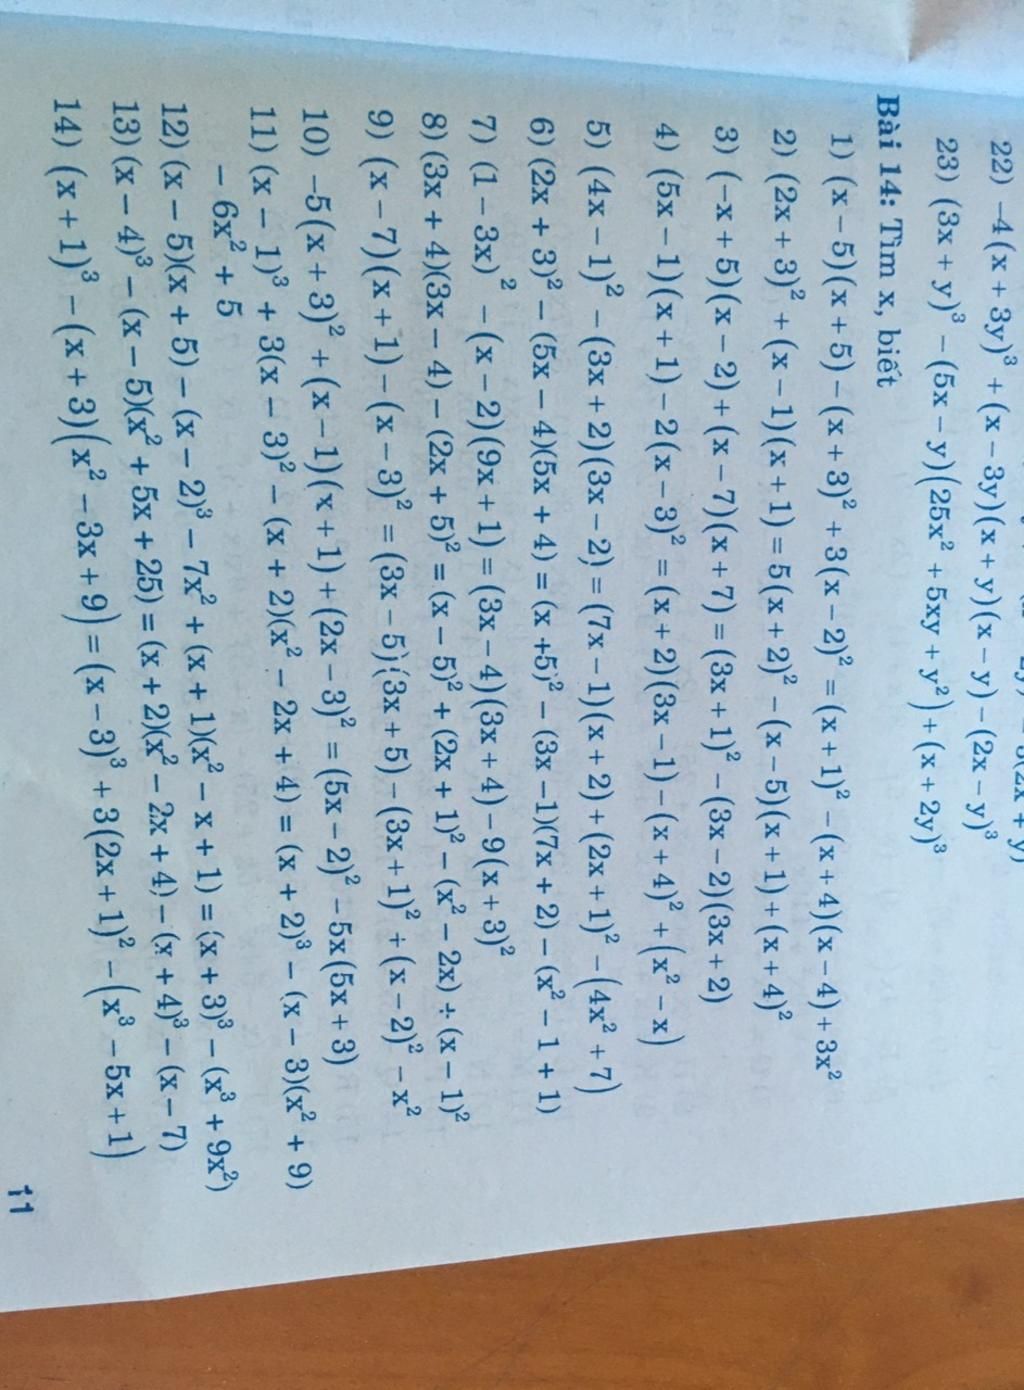 22) −4(x + 3y)³ + (x − 3y)(x + y)(x − y) − (2x − y)³
23) (3x + y)³ − (5x − y)(25x² + 5xy + y²) + (x + 2y)³
Bài 14: Tìm x, biết
1) (x − 5)(x + 5) − (x + 3)² + 3(x − 2)² = (x + 1)² − (x + 4)(x − 4) + 3x²
2) (2x + 3)² + (x − 1)(x + 1) = 5(x + 2)² − (x − 5)(x + 1) + (x + 4)²
3) (−x + 5)(x − 2) + (x − 7)(x + 7) = (3x + 1)² − (3x − 2)(3x + 2)
4) (5x − 1)(x + 1) − 2(x − 3)² = (x + 2)(3x − 1) − (x + 4)² + (x² − x)
5) (4x − 1)² − (3x + 2)(3x − 2) = (7x − 1)(x + 2) + (2x + 1)² − (4x² + 7)
6) (2x + 3)² − (5x − 4)(5x + 4) = (x +5)² − (3x −1)(7x + 2) − (x² − 1 + 1)
7) (1 − 3x)² − (x − 2)(9x + 1) = (3x − 4)(3x + 4) − 9(x + 3)²
8) (3x + 4)(3x − 4) − (2x + 5)² = (x − 5)² + (2x + 1)² − (x² − 2x) ÷ (x − 1)²
9) (x − 7)(x + 1) − (x − 3)² = (3x − 5)(3x + 5) − (3x + 1)² ÷ (x − 2)² − x²
10) −5(x + 3)² + (x − 1)(x + 1) + (2x − 3)² = (5x − 2)² − 5x(5x + 3)
11) (x − 1)³ + 3(x − 3)² − (x + 2)(x² − 2x + 4) = (x + 2)³ − (x − 3)(x² + 9)
− 6x² + 5
12) (x − 5)(x + 5) − (x − 2)³ − 7x² + (x + 1)(x² − x + 1) = (x + 3)³ − (x³ + 9x²)
13) (x − 4)³ − (x − 5)(x² + 5x + 25) = (x + 2)(x² − 2x + 4) − (x + 4)³ − (x − 7)
14) (x + 1)³ − (x + 3)(x² − 3x + 9) = (x − 3)³ + 3(2x + 1)² − (x³ − 5x + 1)
11